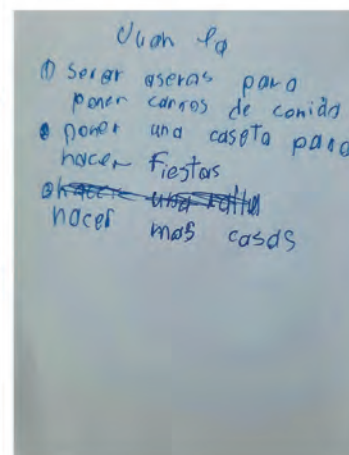 Juan Pa
① serar aseras para
poner carros de comida
• poner una caseta para
hacer fiestas
• hacer una
hacer mas casas